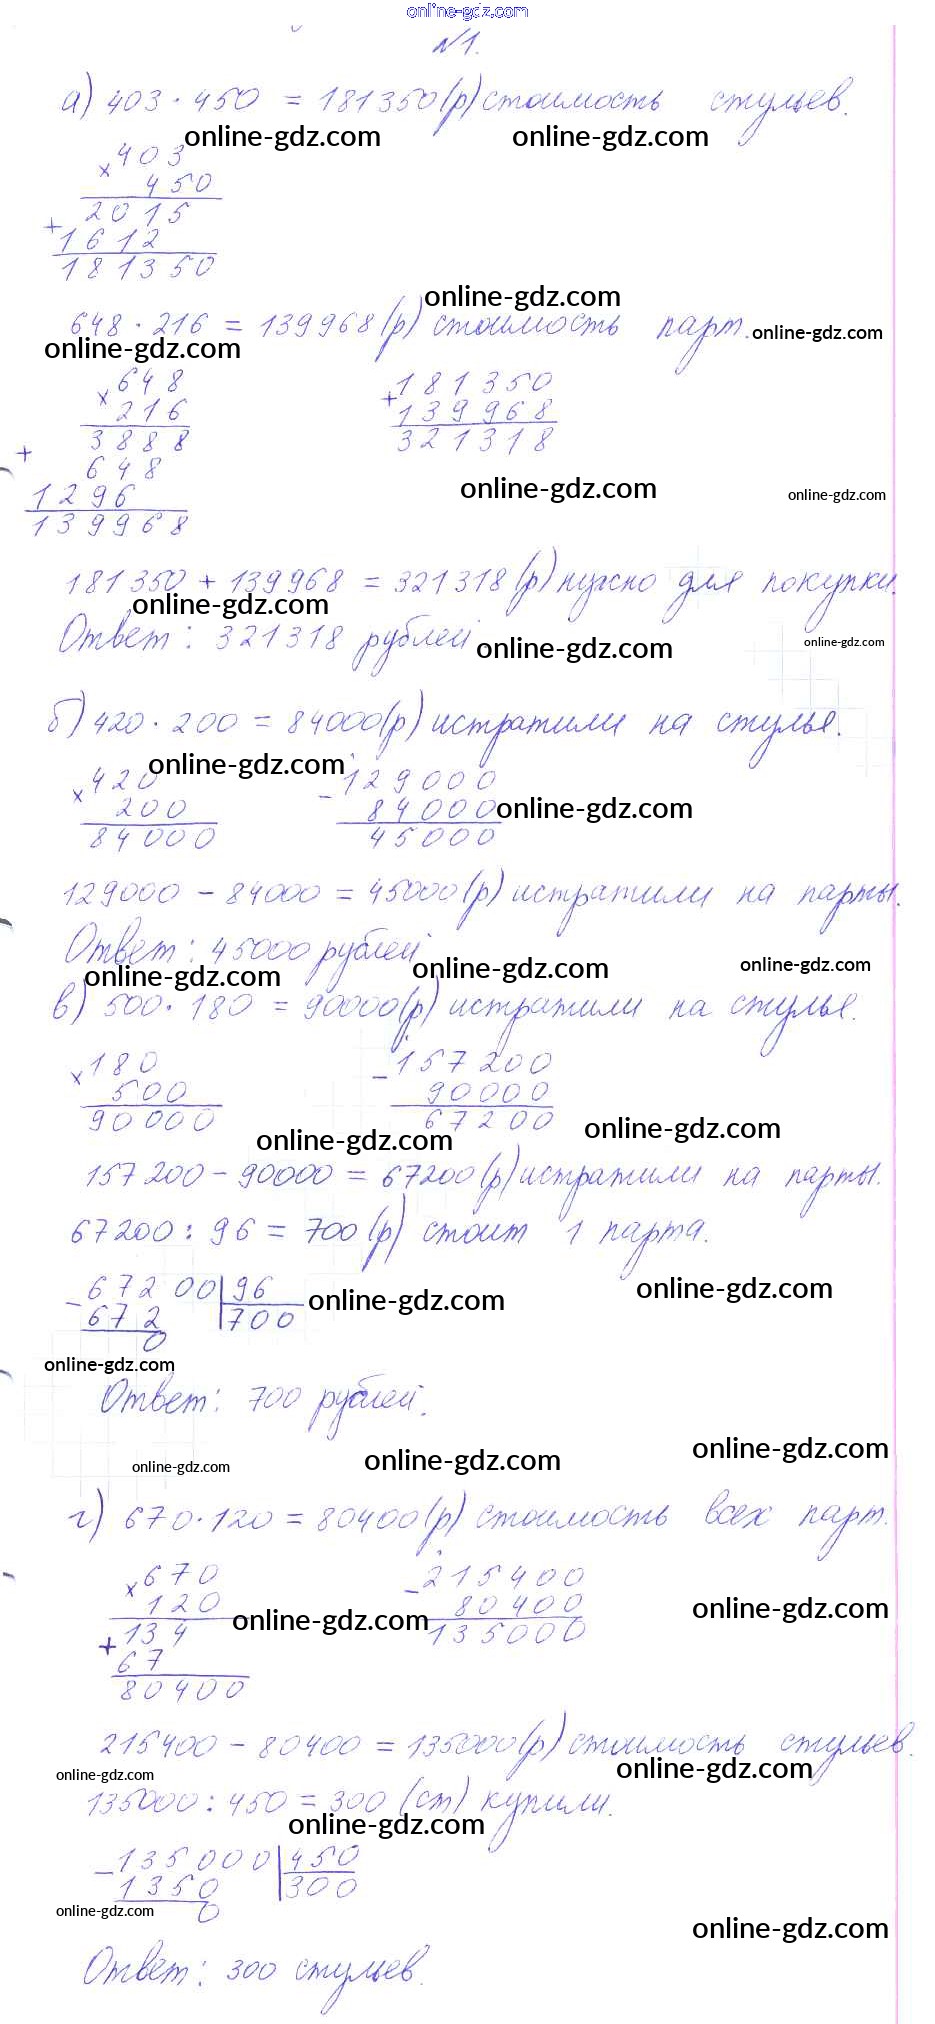 online-gdz.com
№1.
а) 403 · 450 = 181350(р) стоимость стульев.
online-gdz.com online-gdz.com
× 403
450
+ 2015
1612
181350
online-gdz.com
648 · 216 = 139968(р) стоимость парт. online-gdz.com
online-gdz.com
× 648 + 181350
216 139968
3888 321318
+ 648
1296
139968
online-gdz.com online-gdz.com
181350 + 139968 = 321318(р) нужно для покупки.
online-gdz.com
Ответ: 321318 рублей online-gdz.com online-gdz.com
б) 420 · 200 = 84000(р) истратили на стулья.
online-gdz.com
× 420 - 129000
200 84000 online-gdz.com
84000 45000
129000 - 84000 = 45000(р) истратили на парты.
Ответ: 45000 рублей
online-gdz.com online-gdz.com online-gdz.com
в) 500 · 180 = 90000(р) истратили на стулья.
× 180 - 157200
500 90000
90000 67200
online-gdz.com online-gdz.com
157200 - 90000 = 67200(р) истратили на парты.
67200 : 96 = 700(р) стоит 1 парта.
- 67200 96 online-gdz.com online-gdz.com
672 700
0
online-gdz.com
Ответ: 700 рублей.
online-gdz.com online-gdz.com online-gdz.com
г) 670 · 120 = 80400(р) стоимость всех парт.
× 670 - 215400
120 80400 online-gdz.com
+ 134 online-gdz.com 135000
67
80400
215400 - 80400 = 135000(р) стоимость стульев.
online-gdz.com online-gdz.com
135000 : 450 = 300 (ст) купили.
online-gdz.com
- 135000 450
1350 300
0
online-gdz.com online-gdz.com
Ответ: 300 стульев.